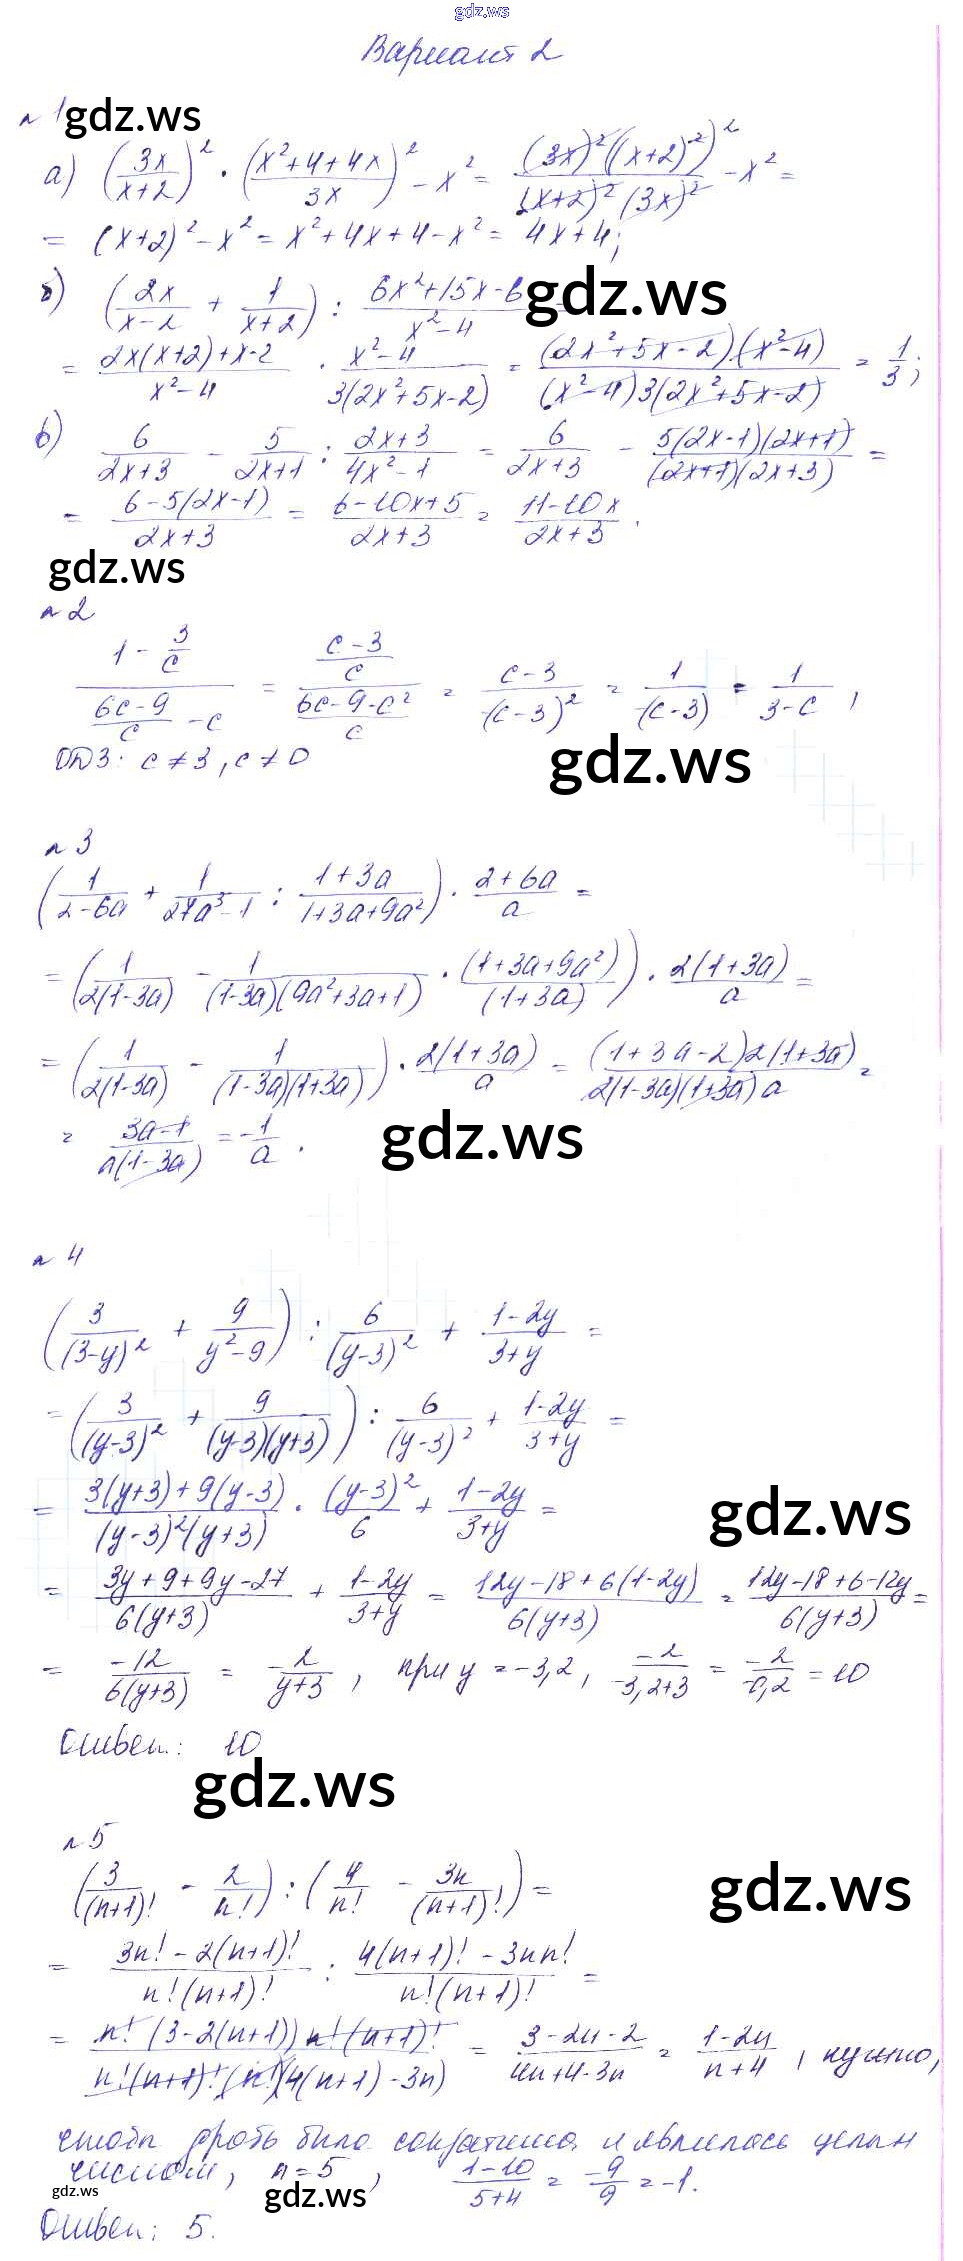 gdz.ws
Вариант 2
n 1 gdz.ws
а) (3x/(x+2))² · ((x²+4+4x)/3x)² - x² = ((3x)²((x+2)²)²)/((x+2)²(3x)²) - x² =
= (x+2)² - x² = x²+4x+4-x² = 4x+4;
б) (2x/(x-2) + 1/(x+2)) : (6x²+15x-6)/(x²-4) = gdz.ws
= (2x(x+2)+x-2)/(x²-4) · (x²-4)/(3(2x²+5x-2)) = ((2x²+5x-2)(x²-4))/((x²-4)3(2x²+5x-2)) = 1/3;
в) 6/(2x+3) - 5/(2x+1) : (2x+3)/(4x²-1) = 6/(2x+3) - (5(2x-1)(2x+1))/((2x+1)(2x+3)) =
= (6-5(2x-1))/(2x+3) = (6-10x+5)/(2x+3) = (11-10x)/(2x+3).
gdz.ws
n 2
(1 - 3/c)/((6c-9)/c - c) = ((c-3)/c)/((6c-9-c²)/c) = (c-3)/(-(c-3)²) = 1/(-(c-3)) = 1/(3-c),
ОДЗ: c≠3, c≠0
gdz.ws
n 3
(1/(2-6a) + 1/(27a³-1) : (1+3a)/(1+3a+9a²)) · (2+6a)/a =
= (1/(2(1-3a)) - 1/((1-3a)(9a²+3a+1)) · (1+3a+9a²)/(1+3a)) · 2(1+3a)/a =
= (1/(2(1-3a)) - 1/((1-3a)(1+3a))) · 2(1+3a)/a = ((1+3a-2)2(1+3a))/(2(1-3a)(1+3a)a) =
= (3a-1)/(a(1-3a)) = -1/a.
gdz.ws
n 4
(3/(3-y)² + 9/(y²-9)) : 6/(y-3)² + (1-2y)/(3+y) =
= (3/(y-3)² + 9/((y-3)(y+3))) : 6/(y-3)² + (1-2y)/(3+y) =
= (3(y+3)+9(y-3))/((y-3)²(y+3)) · (y-3)²/6 + (1-2y)/(3+y) =
gdz.ws
= (3y+9+9y-27)/(6(y+3)) + (1-2y)/(3+y) = (12y-18+6(1-2y))/(6(y+3)) = (12y-18+6-12y)/(6(y+3)) =
= -12/(6(y+3)) = -2/(y+3), при y = -3,2, -2/(-3,2+3) = -2/(-0,2) = 10
Ответ: 10
gdz.ws
n 5
(3/(n+1)! - 2/n!) : (4/n! - 3n/(n+1)!) =
gdz.ws
= (3n!-2(n+1)!)/(n!(n+1)!) : (4(n+1)!-3nn!)/(n!(n+1)!) =
= (n!(3-2(n+1))n!(n+1)!)/(n!(n+1)!(n!)(4(n+1)-3n)) = (3-2n-2)/(4n+4-3n) = (1-2n)/(n+4), нужно,
чтобы дробь была сократима и являлась целым
числом, n = 5, (1-10)/(5+4) = -9/9 = -1.
gdz.ws
gdz.ws
Ответ: 5.